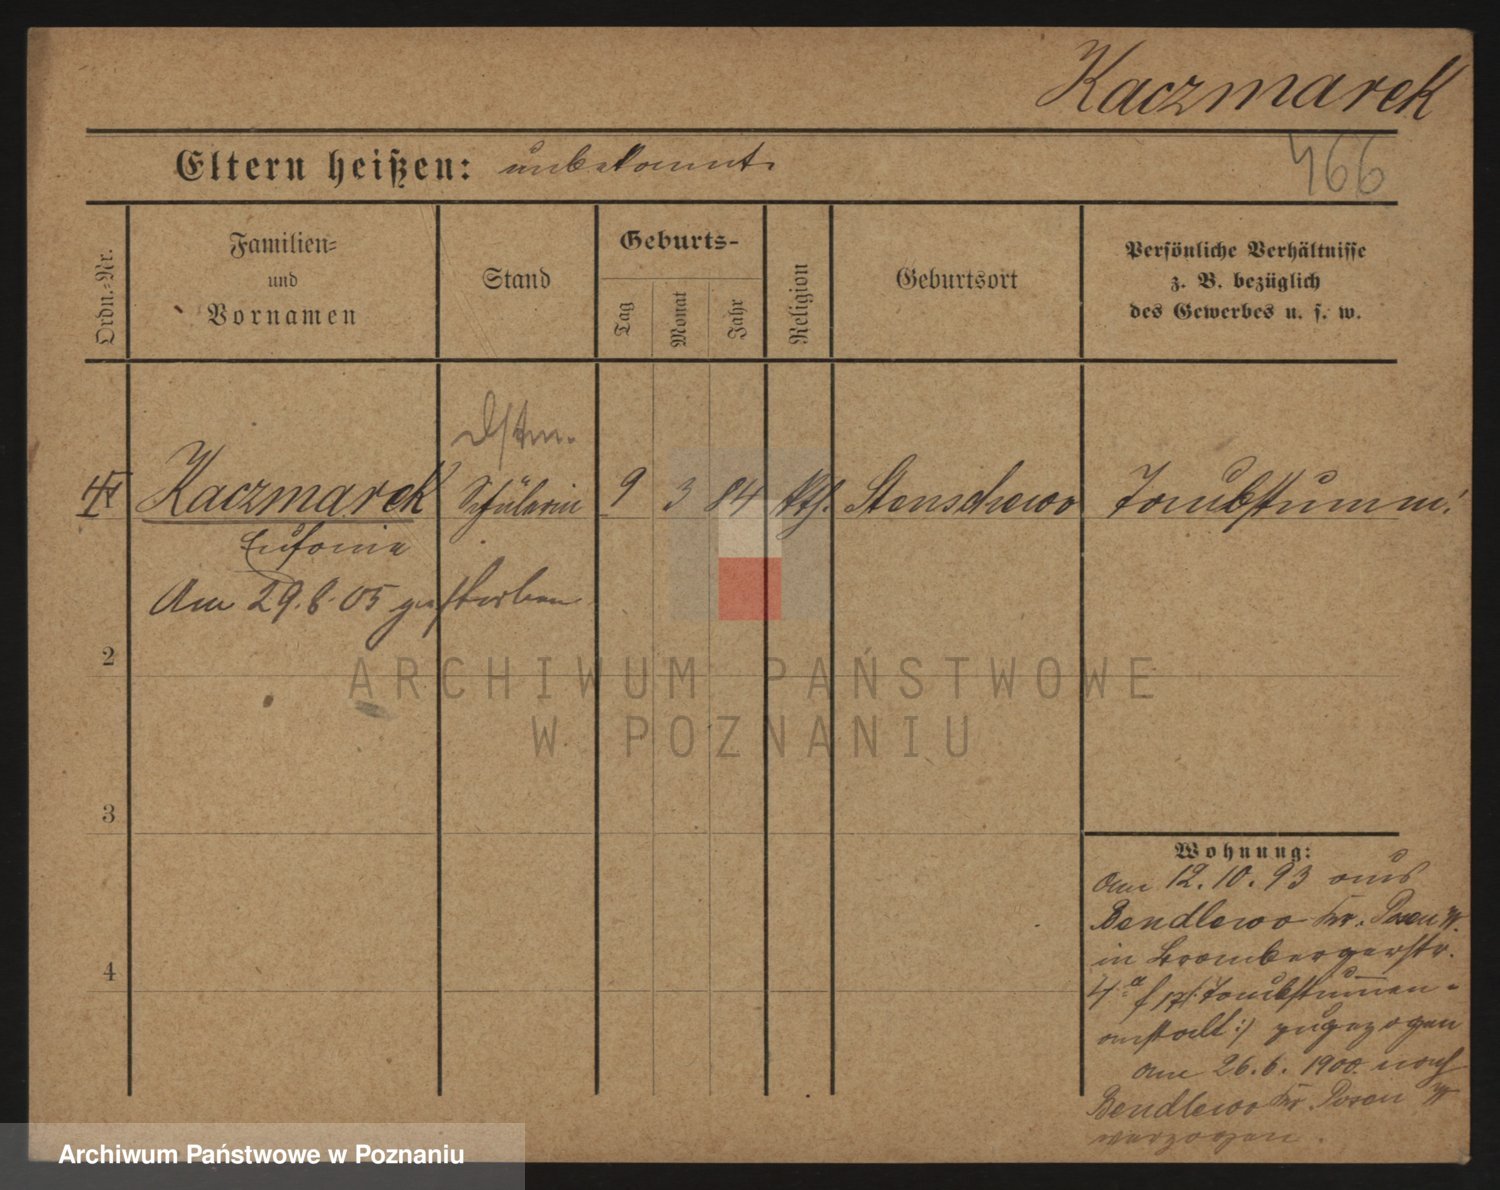 Kaczmarek
466
Eltern heißen: unbekannt.
Ordn.-Nr.
Familien-
und
Vornamen
Stand
Geburts-
Tag
Monat
Jahr
Religion
Geburtsort
Persönliche Verhältnisse
z. B. bezüglich
des Gewerbes u. s. w.
Kaczmarek Schülerin 9 3 84 kth. Stenschewo Taubstumm!
Eufonia
Am 29.8.05 gestorben
2
3
4
ARCHIWUM PAŃSTWOWE
W POZNANIU
Wohnung:
Am 12.10.93 aus
Bendlewo Kr. Posen W.
in Brombergerstr.
4a Taubstummen-
anstalt:/ zugezogen
am 26.6.1900 nach
Bendlewo Kr. Posen W
verzogen.
Archiwum Państwowe w Poznaniu